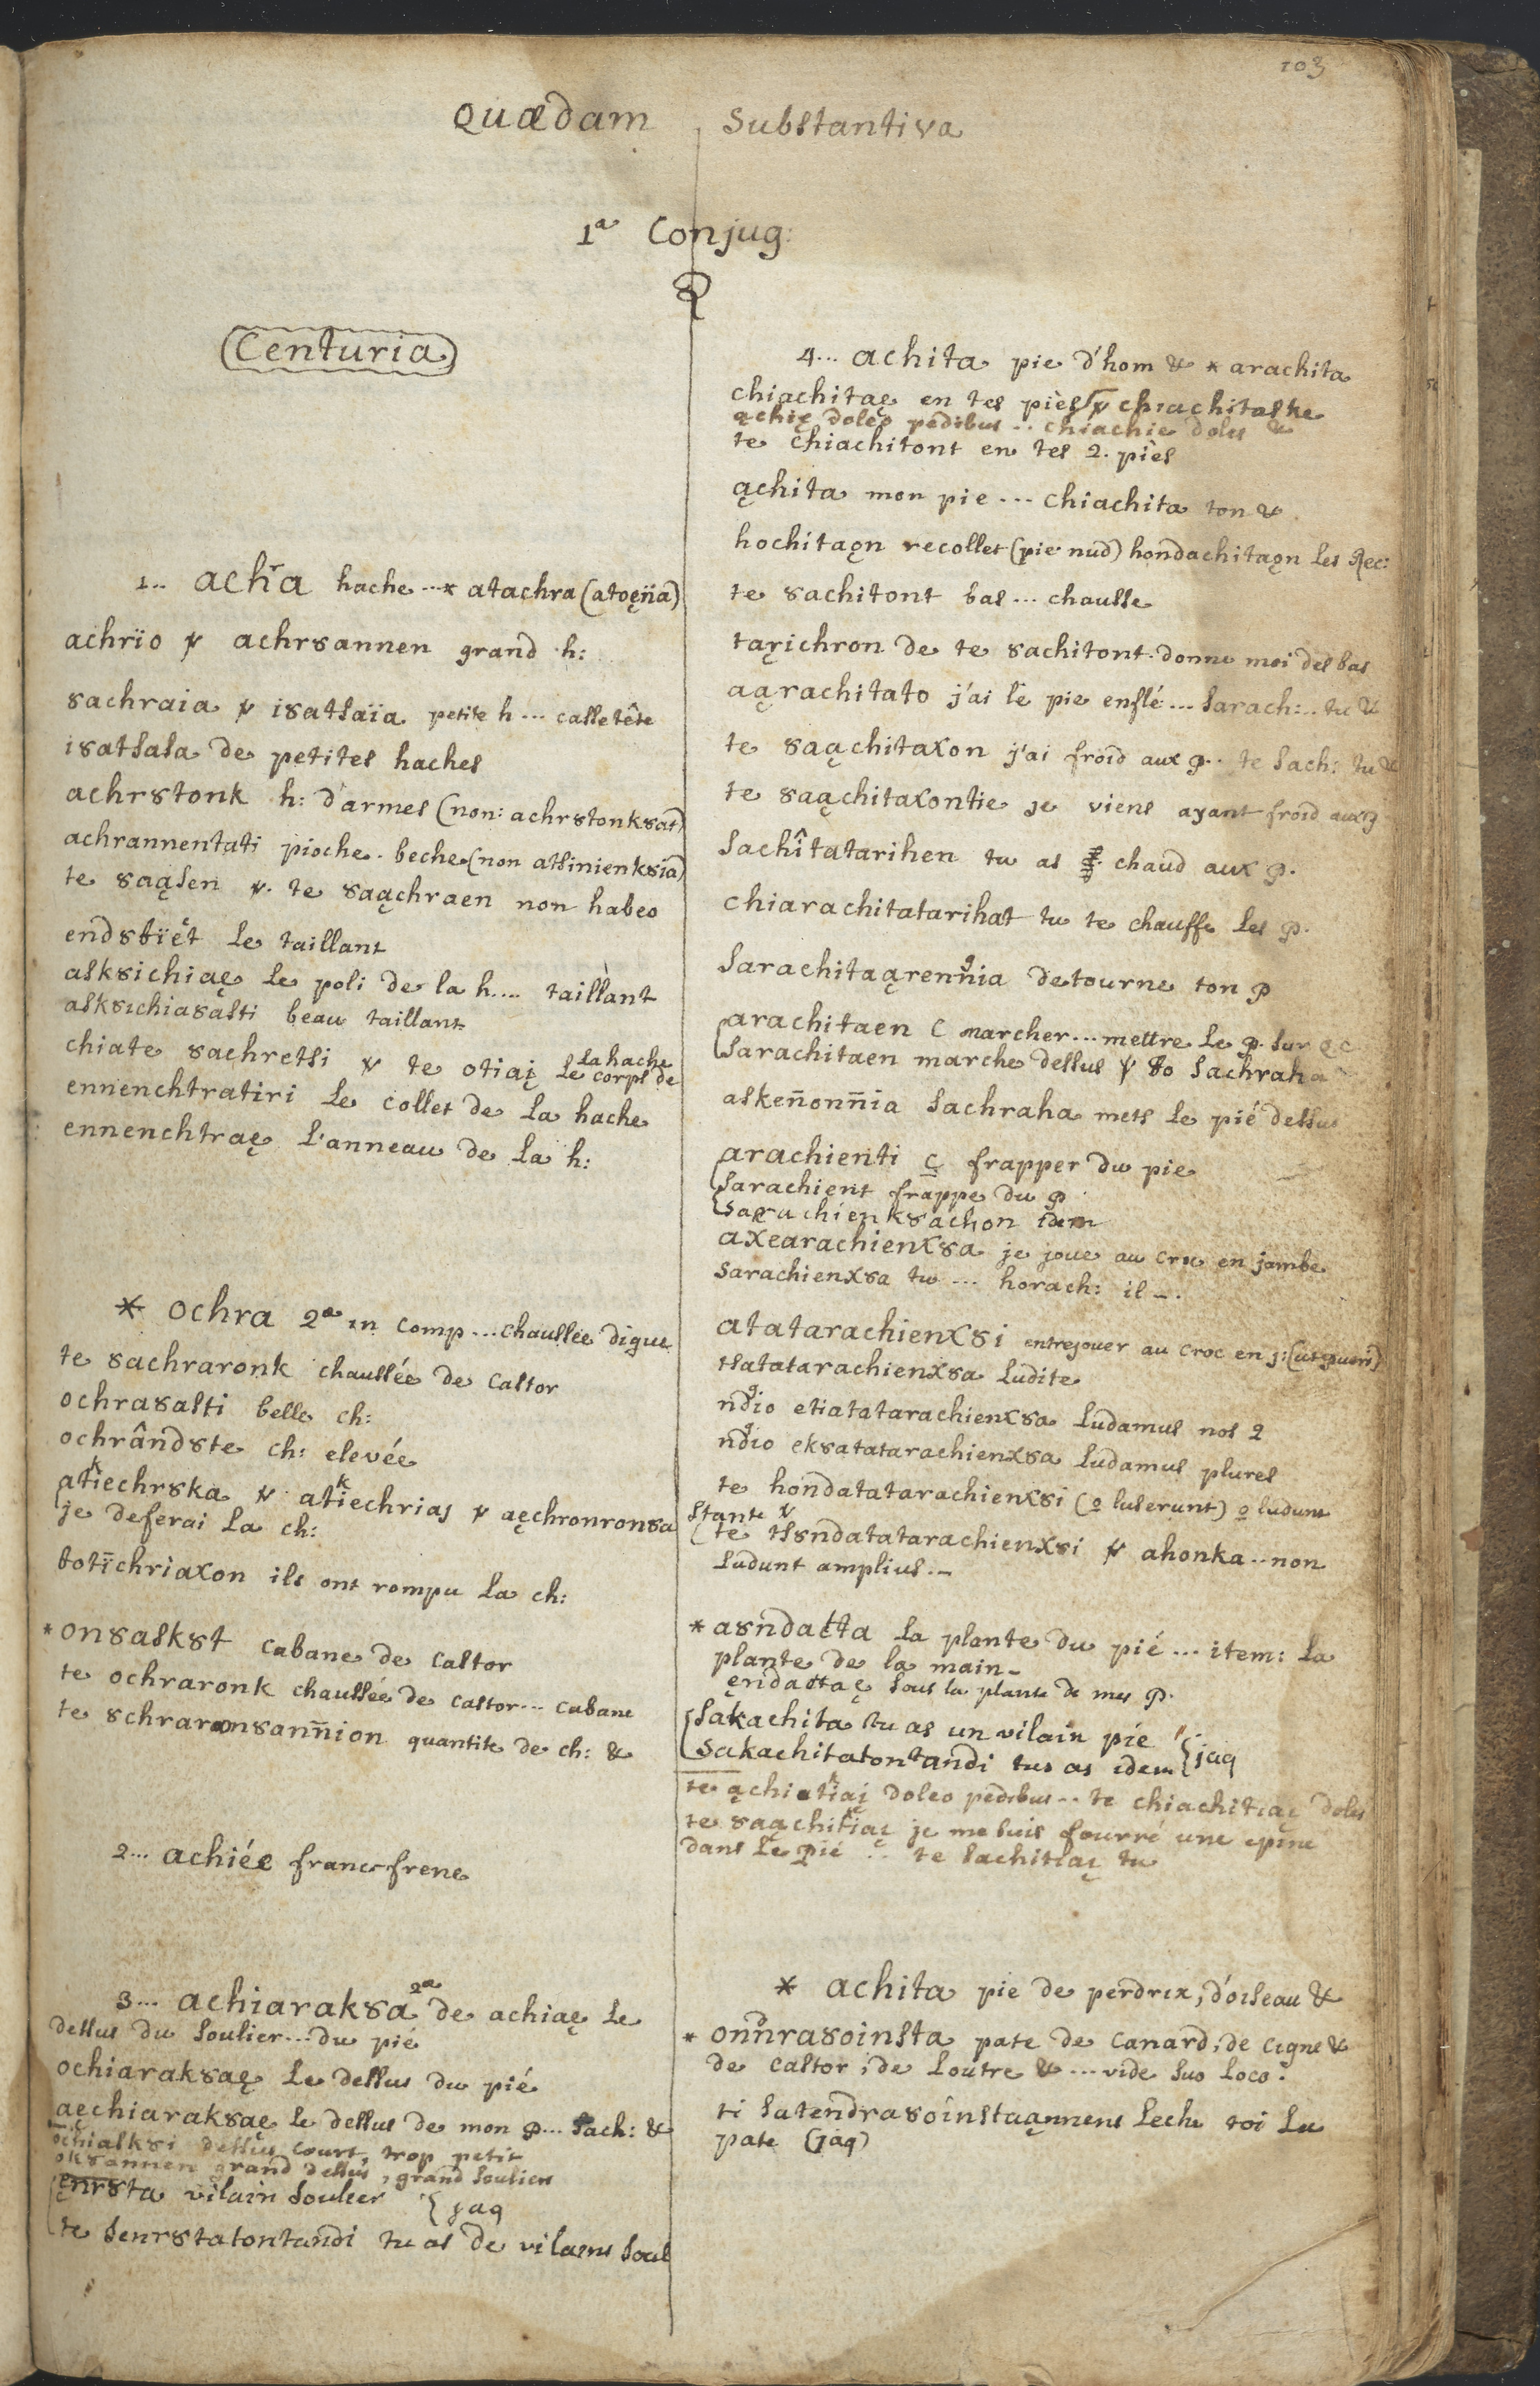 103
Quædam Substantiva
1ª Conjug:
Centuria
1... achra hache ...* atachra (atoęñia)
achrïo ٧ achr8annen grand h:
sachraia ٧ isatsaïa petite h ... casse tête
isatsasa de petites haches
achr8tonk h: d'armes (non: achr8tonk8at)
achrannentati pioche. beche (non atsinienk8ia)
te 8aąsen ٧. te 8aąchraen non habeo
end8tïét le taillant
ask8ichiaę le poli de la h.... taillant
ask8ichia8asti beau taillant
chiate 8achretsi ٧ te otiaį le corps de la hache
ennenchtratiri le collet de la hache
ennenchtraę l'anneau de la h:
* ochra 2ª in comp ... chaussée digue
te 8achraronk chaussée de castor
ochra8asti belle ch:
ochrând8te ch: elevée
atiechr8ka ٧ atiechrias ٧ aęchronron8a
je deferai la ch:
botïchriaxon ils ont rompu la ch:
* on8ask8t cabane de castor
te ochraronk chaussée de castor ... cabane
te 8chraron8annion quantite de ch: &
2... achiée franc frene
3... achiarak8a 2ª de achiaę le
dessus du soulier ... du pié
ochiarak8aę le dessus du pié
aęchiarak8aę le dessus de mon p... sach: &
ochiask8i dessus court, trop petit
ok8annen grand dessus, grand soulier
ęnr8ta vilain soulier } jaq
te senr8tatontandi tu as de vilains soul
4... achita pie d'hom & * arachita
chiachitaę en tes piès ٧ chiachitaske
ąchię doleo pedibus .. chiachie doles &
te chiachitont en tes 2. piès
ąchita mon pie ... chiachita ton &
hochitaǫn recollet (pie nud) hondachitaǫn les Rec:
te 8achitont bas ... chausse
taįichron de te 8achitont. donne moi des bas
aąrachitato j'ai le pie enflé ... sarach: .. tu &
te 8aąchitaxon j'ai froid aux p.. te sach: tu &
te 8aąchitaxontie je viens ayant froid aux p
sachîtatarihen tu as chaud aux p.
chiarachitatarihat tu te chauffe les p.
sarachitaąrennia detourne ton p
arachitaen C marcher ... mettre le p. sur q c
sarachitaen marche dessus ٧ to sachraha
askeñonñia sachraha mets le pié dessus
arachienti C frapper du pie
sarachient frappe du p
sarachienk8achon idem
axearachienx8a je joue au croc en jambe
sarachienx8a tu ... horach: il ...
atatarachienx8i entrejouer au croc en j: (ut pueri)
tsatatarachienx8a ludite
ndio etiatatarachienx8a ludamus nos 2
ndio ek8atatarachienx8a ludamus plures
te hondatatarachienx8i (o luserunt) o ludunt
stante ٧
te ts8ndatatarachienx8i ٧ ahonka .. non
ludunt amplius ..
* as8ndatta la plante du pié ... item: la
plante de la main
ęndattaę sous la plante de mes p.
sakachita tu as un vilain pie } jaq
sakachitatontandi tu as idem
te ąchiatiaį doleo pedibus .. te chiachitiaį doles
te 8aąchitiaį je me suis fourré une epine
dans le pié .. te sachitiaį tu
* achita pie de perdrix, d'oiseau &
* onnra8oinsta pate de canard, de cigne &
de castor, de loutre & ... vide suo loco.
ti satendra8oinstaąnnens leche toi la
pate (jaq)